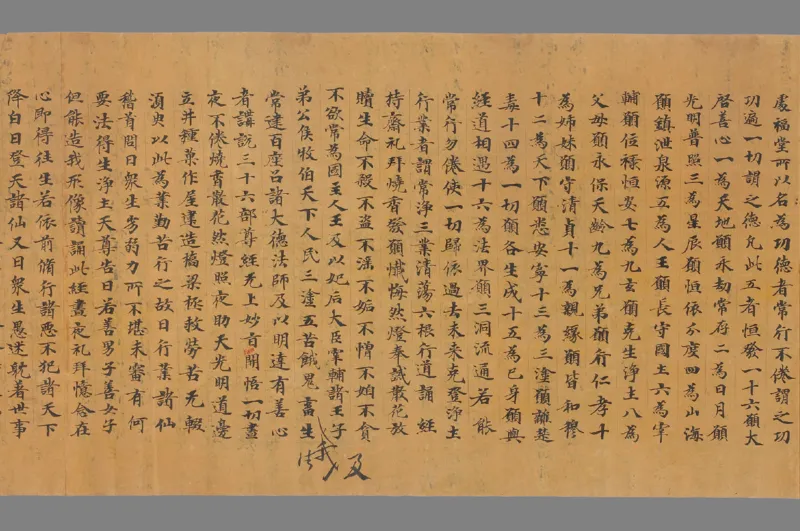 處福堂所以名為功德者常行不倦謂之功
功遍一切謂之德凡此五者恒發一十六願大
啓善心一為天地願永劫常存二為日月願
光明普照三為星辰願恒依分度四為山海
願鎮泄泉源五為人王願長守國土六為宰
輔願位祿恒安七為九玄願克生淨土八為
父母願永保天齡九為兄弟願行仁孝十
為姊妹願守清貞十一為親緣願皆和穆
十二為天下願悉安寧十三為三塗願離楚
毒十四為一切願各生成十五為己身願與
經道相遇十六為法界願三洞流通若能
常行勿倦使一切歸依過去未來克登淨土
行業者謂常淨三業清蕩六根行道誦經
持齋礼拜燒香發願懺悔然燈奉試散花放
贖生命不殺不盜不淫不妬不憎不㛂不貪
不欲常為國主人王及以妃后大臣宰輔諸王子
弟公侯牧伯天下人民三塗五苦餓鬼畜生
常建百座召諸大德法師及以明達有善心
者講說三十六部尊經无上妙旨開悟一切晝
夜不倦燒香散花然燈照夜助天光明道邊
立井種菓作屋建造橋梁拯救勞苦无輟
湏臾以此為業勤苦行之故曰行業諸仙
稽首問曰衆生劣弱力所不堪未審有何
要法得生淨土天尊告曰若善男子善女子
但能造我形像讀誦此經晝夜礼拜憶念在
心即得往生若依前脩行諸惡不犯諸天下
降白日登天諸仙又曰衆生愚迷躭著世事
及
我
法